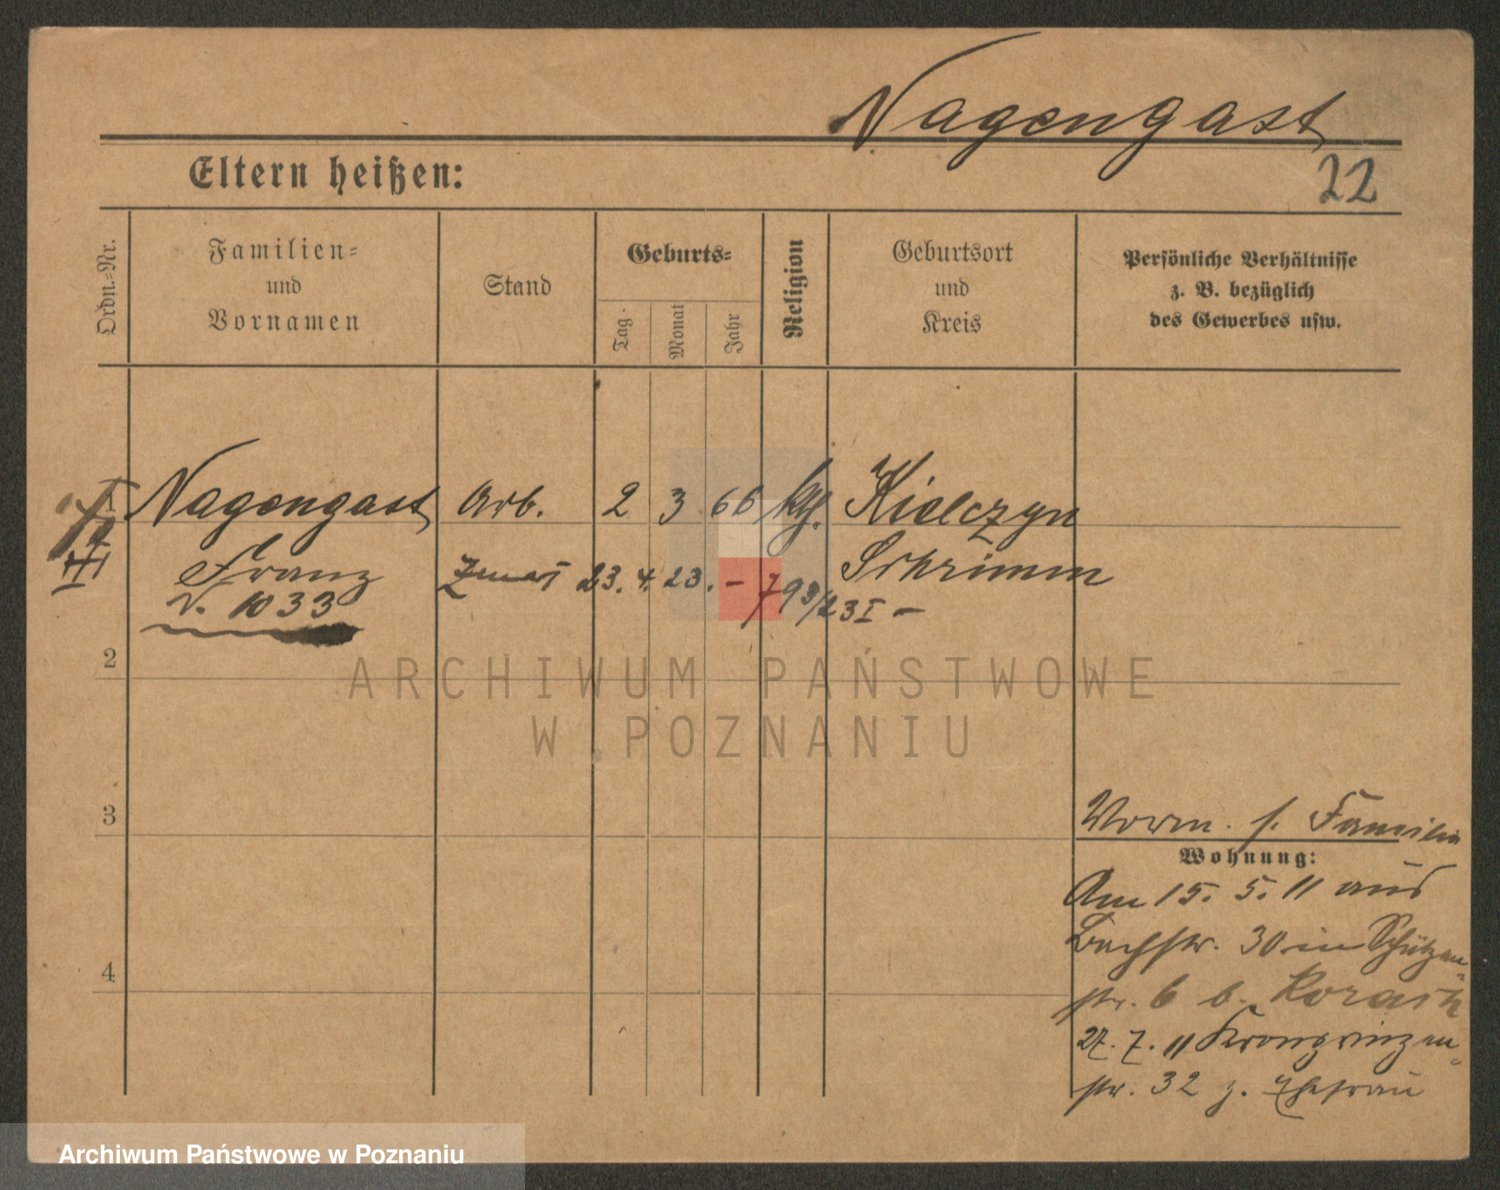 Nagengast
Eltern heißen:
22
Ordn.-Nr.
Familien-
und
Vornamen
Stand
Geburts-
Tag
Monat
Jahr
Religion
Geburtsort
und
Kreis
Persönliche Verhältnisse
z. B. bezüglich
des Gewerbes usw.
Nagengast Arb. 2 3 66 kth. Kielczyn
Franz Zmarł 23. 4. 23. – Schrimm
v. 1033 793/23 I –
2
3
4
Vorm. s. Familie
Wohnung:
Am 15. 5. 11 aus
Bachstr. 30 in Schützen-
str. 6 b.
27. 7. 11 Kronprinzen-
str. 32 z. Ehefrau
ARCHIWUM PAŃSTWOWE
W POZNANIU
Archiwum Państwowe w Poznaniu